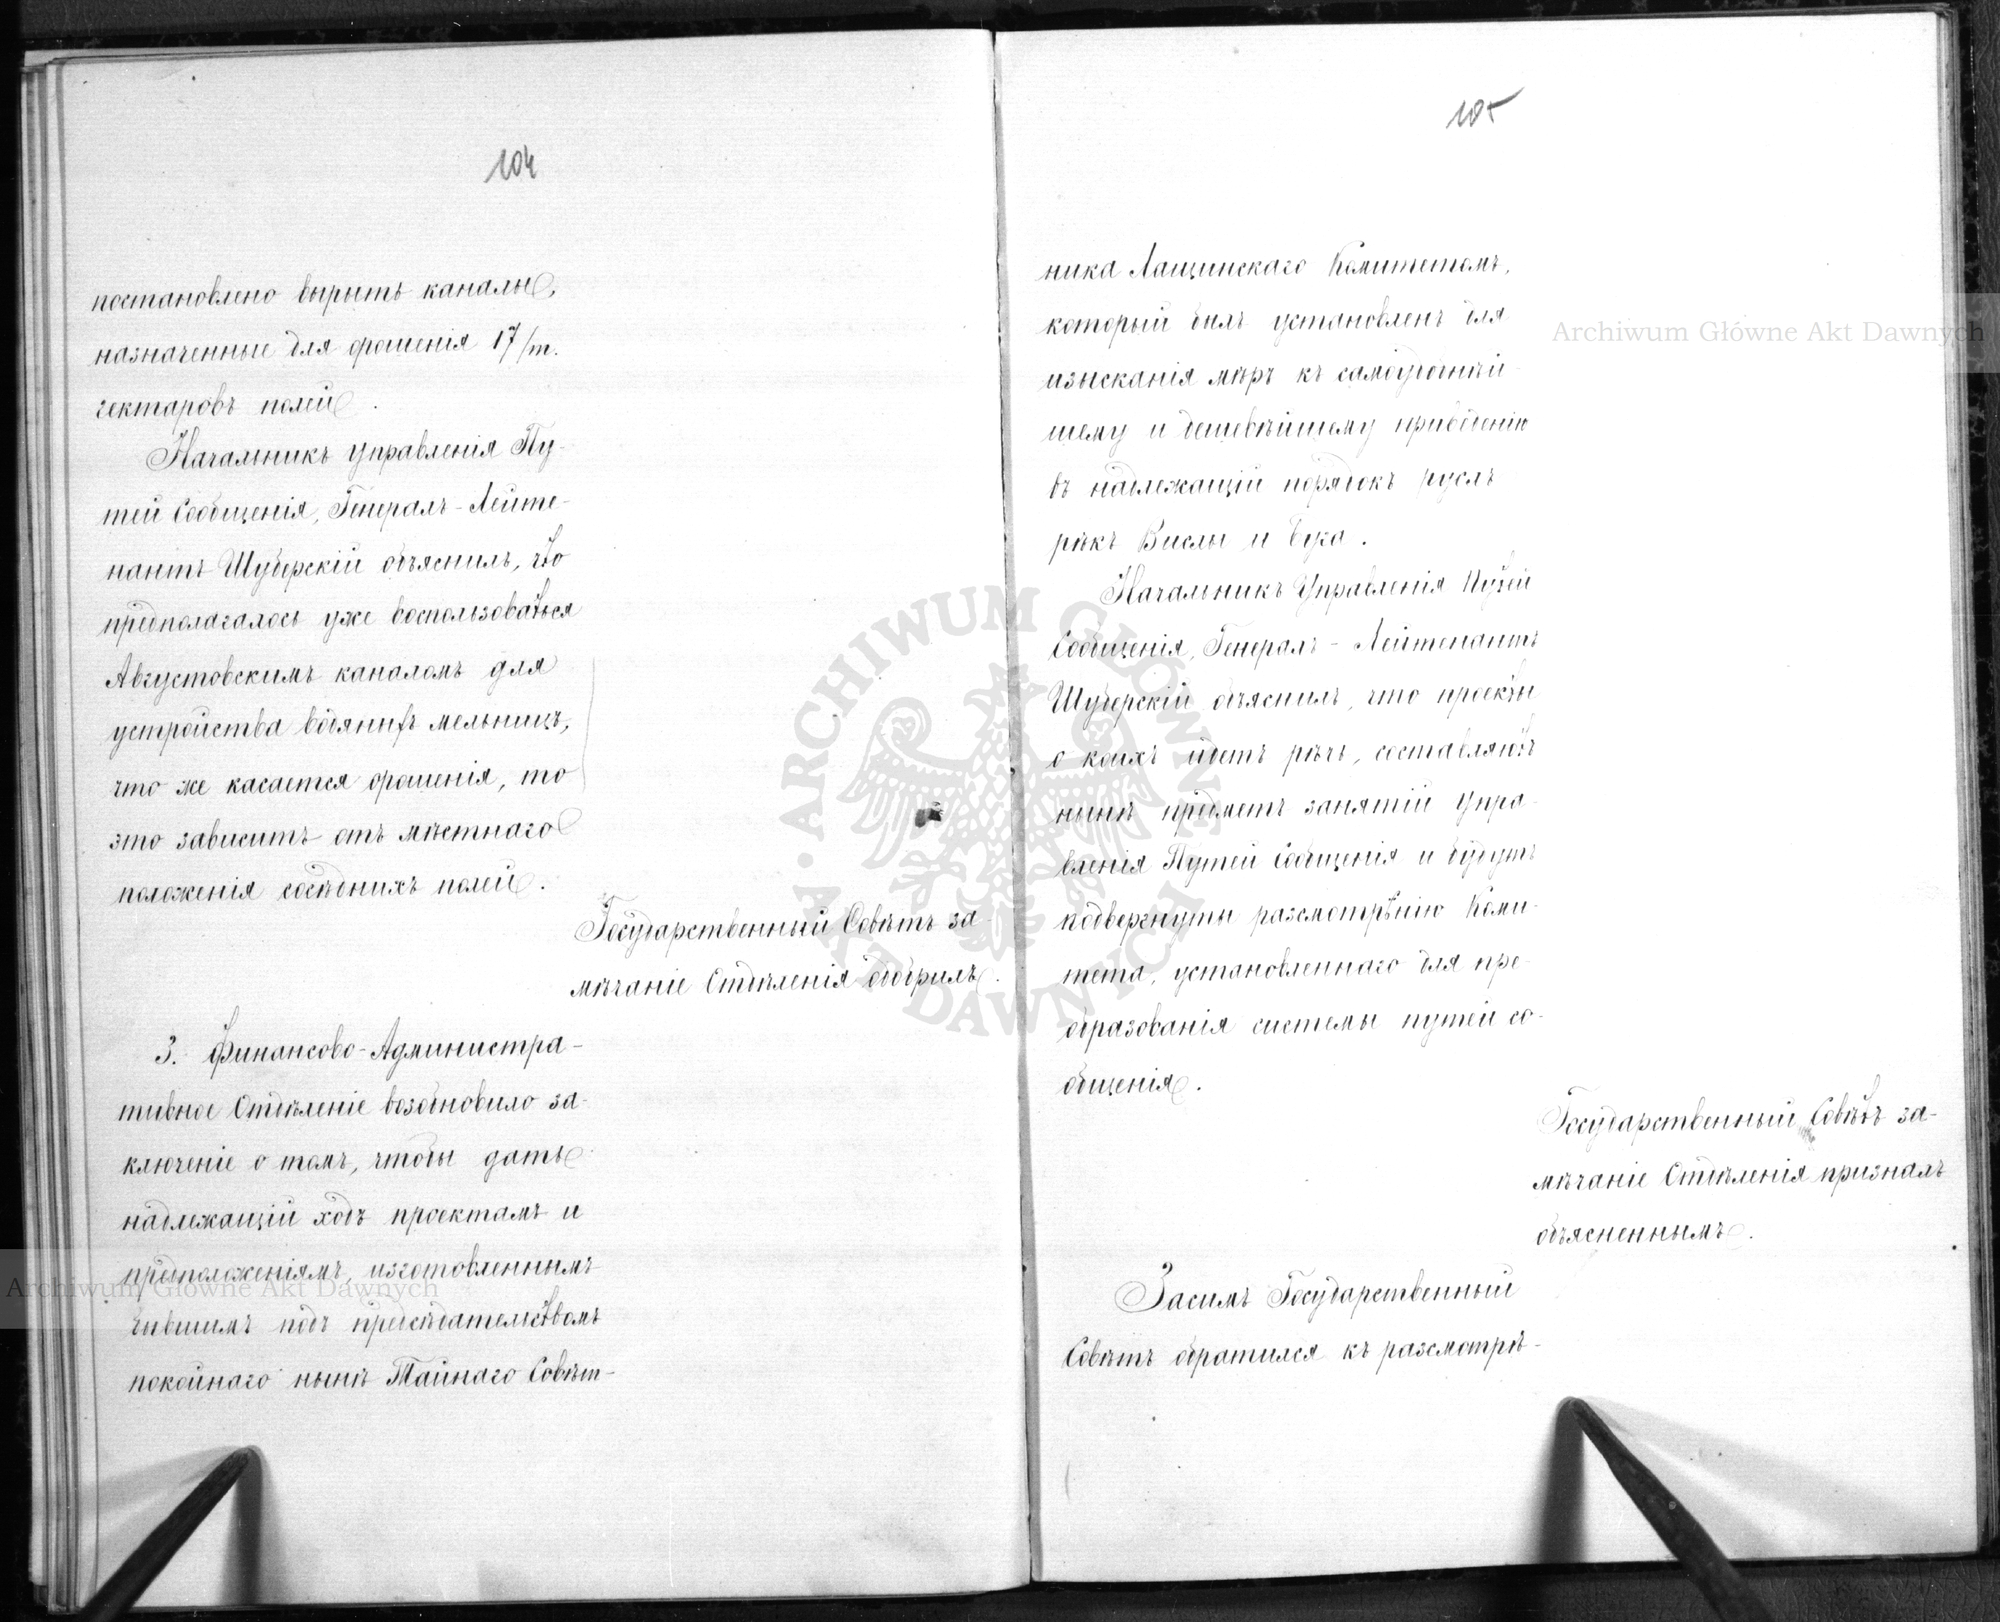 104
постановлено вырыть каналы,
назначенные для орошенія 17/т.
гектаровъ полей.
Начальникъ управленія Пу-
тей Сообщенія, Генералъ-Лейте-
нантъ Шуберскій объяснилъ, что
предполагалось уже воспользоваться
Августовскимъ каналомъ для
устройства водяныхъ мельницъ,
что же касается орошенія, то
это зависитъ отъ мѣстнаго
положенія сосѣднихъ полей.
Государственный Совѣтъ за-
мѣчаніе Отдѣленія одобрилъ.
3. Финансово-Администра-
тивное Отдѣленіе возобновило за-
ключеніе о томъ, чтобы дать
надлежащій ходъ проектамъ и
предположеніямъ, изготовленнымъ
бывшимъ подъ предсѣдательствомъ
покойнаго нынѣ Тайнаго Совѣт-
105
ника Лащинскаго Комитетомъ,
который былъ установленъ для
изысканія мѣръ къ
шему и дешевѣйшему приведенію
въ надлежащій порядокъ руслъ
рѣкъ Вислы и Буга.
Начальникъ Управленія Путей
Сообщенія, Генералъ-Лейтенантъ
Шуберскій объяснилъ, что проекты
о коихъ идетъ рѣчь, составляютъ
нынѣ предметъ занятій Упра-
вленія Путей Сообщенія и будутъ
подвергнуты разсмотрѣнію Коми-
тета, установленнаго для пре-
образованія системы путей со-
общенія.
Государственный Совѣтъ за-
мѣчаніе Отдѣленія призналъ
объясненнымъ.
Засимъ Государственный
Совѣтъ обратился къ разсмотрѣ-
Archiwum Główne Akt Dawnych
Archiwum Główne Akt Dawnych
ARCHIWUM GŁÓWNE AKT DAWNYCH